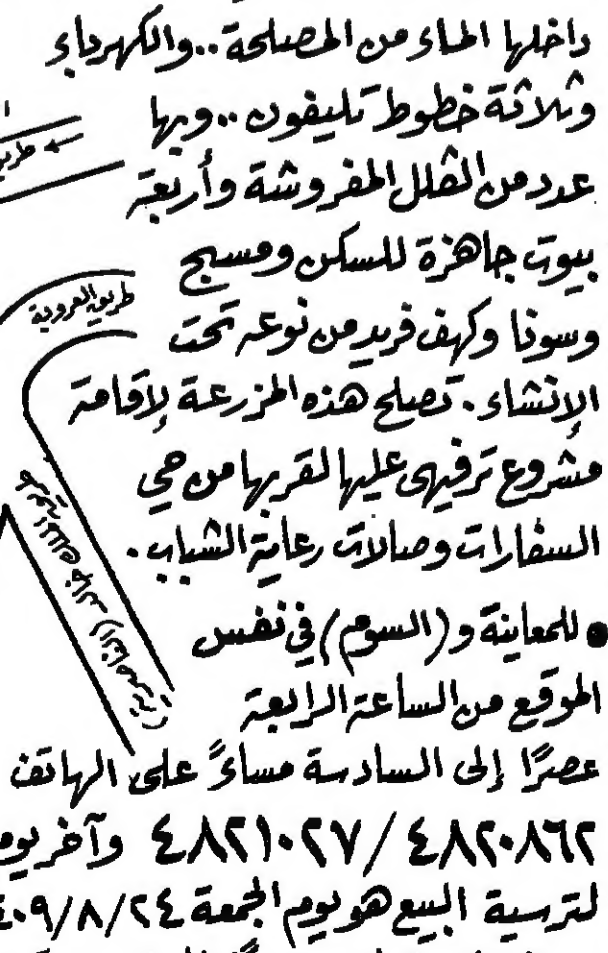 داخلها الماء من المصلحة..والكهرباء
وثلاثة خطوط تليفون..وبها
عدد من الفلل المفروشة وأربعة
بيوت جاهزة للسكن ومسبح
طريق العروبة
وسونا وكهف فريد من نوعه تحت
الإنشاء. تصلح هذه المزرعة لإقامة
مشروع ترفيهي عليها لقربها من حي
السفارات وصالات رعاية الشباب.
طريق الملك خالد (الناصرية)
• للمعاينة و(السوم) في نفس
الموقع من الساعة الرابعة
عصرًا إلى السادسة مساءً على الهاتف
٤٨٢٠٨٦٢ / ٤٨٢١٠٢٧ وآخر يوم
لترسية البيع هو يوم الجمعة ٤٠٩/٨/٢٤